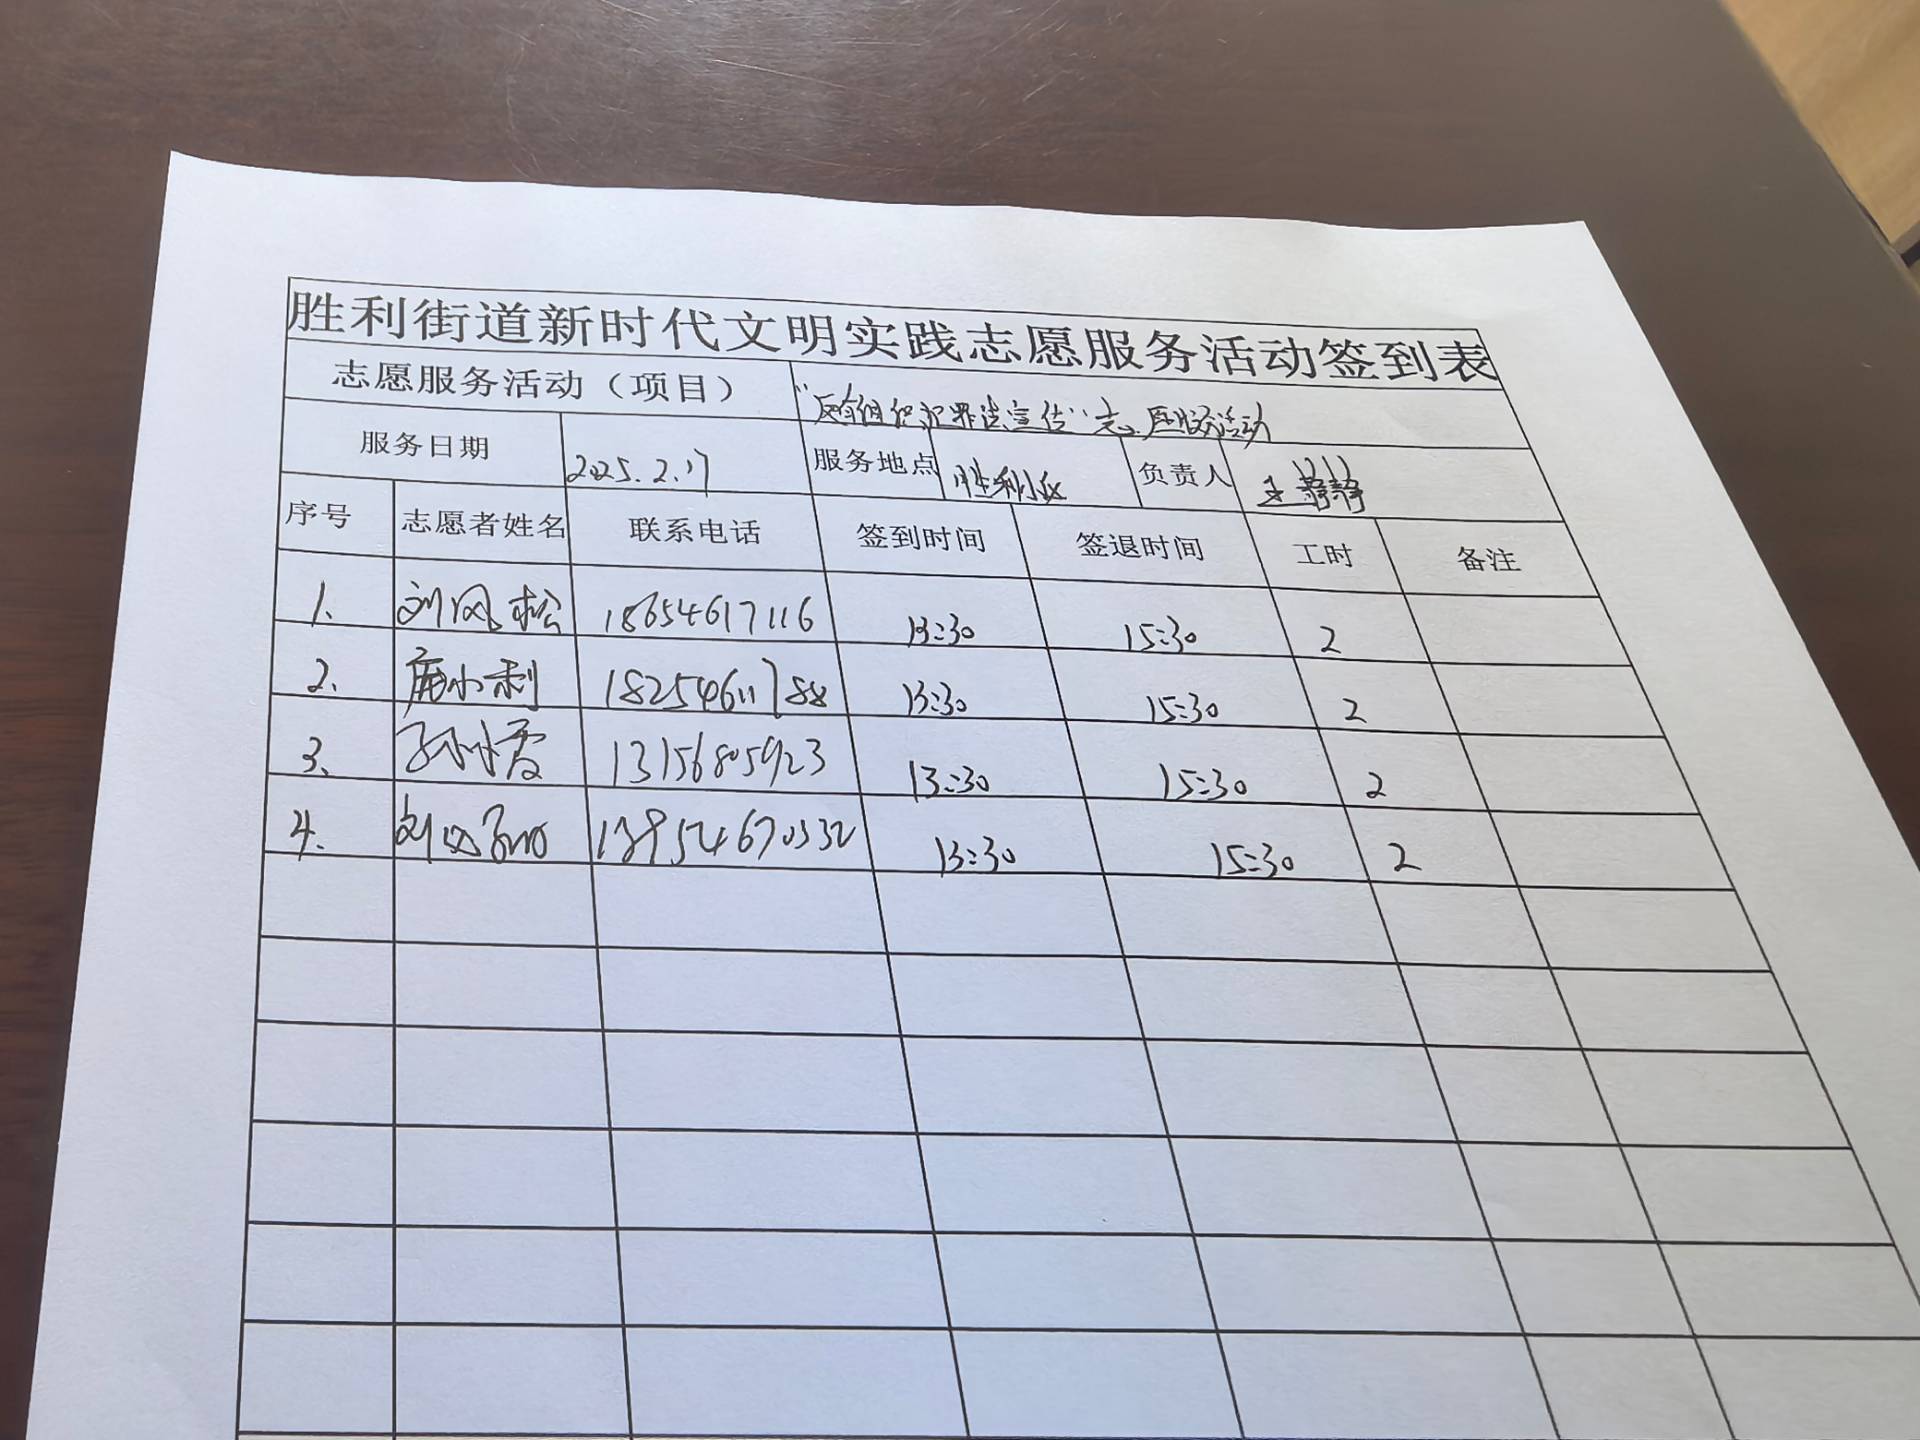 胜利街道新时代文明实践志愿服务活动签到表
志愿服务活动（项目） “反有组织犯罪法宣传”志愿服务活动
服务日期 2025.2.17 服务地点 胜利小区 负责人 王静静
序号 志愿者姓名 联系电话 签到时间 签退时间 工时 备注
1. 刘风松 18654617116 13:30 15:30 2
2. 庞小利 18254611788 13:30 15:30 2
3. 孙小霞 13156805923 13:30 15:30 2
4. 刘 13954670332 13:30 15:30 2